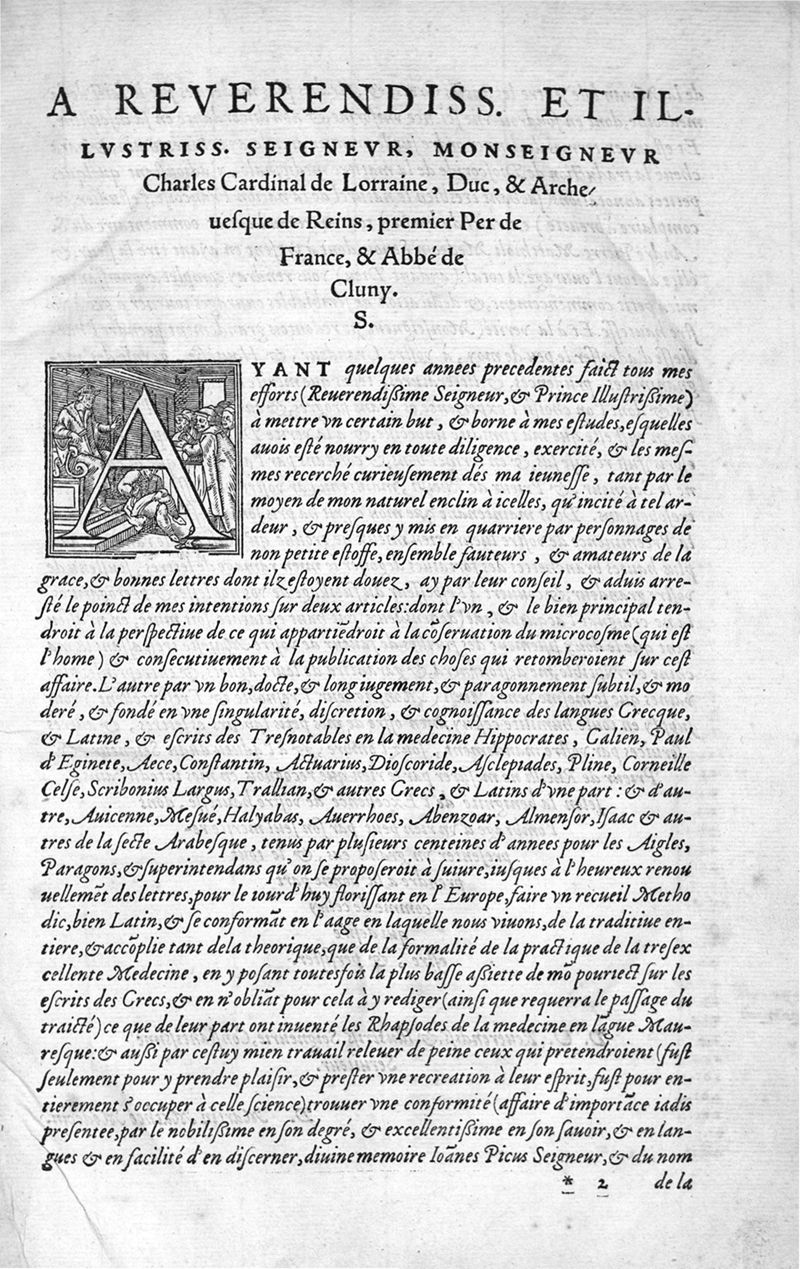 A REVERENDISS. ET IL-
LVSTRISS. SEIGNEVR, MONSEIGNEVR
Charles Cardinal de Lorraine, Duc, & Arche-
ueſque de Reins, premier Per de
France, & Abbé de
Cluny.
S.
AYANT quelques annees precedentes faict tous mes
efforts (Reuerendißime Seigneur, & Prince Illuſtrißime)
à mettre vn certain but, & borne à mes eſtudes, eſquelles
auois eſté nourry en toute diligence, exercité, & les meſ-
mes recerché curieuſement dés ma ieuneſſe, tant par le
moyen de mon naturel enclin à icelles, qu'incité à tel ar-
deur, & preſques y mis en quarriere par perſonnages de
non petite eſtoffe, enſemble fauteurs, & amateurs de la
grace, & bonnes lettres dont ilz eſtoyent douez, ay par leur conſeil, & aduis arre-
ſté le poinct de mes intentions ſur deux articles: dont l'vn, & le bien principal ten-
droit à la perſpectiue de ce qui appartiēdroit à la cōſeruation du microcoſme (qui eſt
l'home) & conſecutiuement à la publication des choſes qui retomberoient ſur ceſt
affaire. L'autre par vn bon, docte, & long iugement, & paragonnement ſubtil, & mo
deré, & fondé en vne ſingularité, diſcretion, & cognoiſſance des langues Grecque,
& Latine, & eſcrits des Treſnotables en la medecine Hippocrates, Galien, Paul
d'Eginete, Aece, Conſtantin, Actuarius, Dioſcoride, Aſclepiades, Pline, Corneille
Celſe, Scribonius Largus, Trallian, & autres Grecs, & Latins d'vne part: & d'au-
tre, Auicenne, Meſué, Halyabas, Auerrhoes, Abenzoar, Almenſor, Iſaac & au-
tres de la ſecte Arabeſque, tenus par pluſieurs centeines d'annees pour les Aigles,
Paragons, & ſuperintendans qu'on ſe propoſeroit à ſuiure, iuſques à l'heureux renou
uellemēt des lettres, pour le iourd'huy floriſſant en l'Europe, faire vn recueil Metho
dic, bien Latin, & ſe conformāt en l'aage en laquelle nous viuons, de la traditiue en-
tiere, & accōplie tant dela theorique, que de la formalité de la practique de la treſex
cellente Medecine, en y poſant toutesfois la plus baſſe aßiette de mō pouriect ſur les
eſcrits des Grecs, & en n'obliāt pour cela à y rediger (ainſi que requerra le paſſage du
traicté) ce que de leur part ont inuenté les Rhapſodes de la medecine en lāgue Mau-
reſque: & außi par ceſtuy mien trauail releuer de peine ceux qui pretendroient (fuſt
ſeulement pour y prendre plaiſir, & preſter vne recreation à leur eſprit, fuſt pour en-
tierement s'occuper à celle ſcience) trouuer vne conformité (affaire d'importāce iadis
preſentee, par le nobilißime en ſon degré, & excellentißime en ſon ſauoir, & en lan-
gues & en facilité d'en diſcerner, diuine memoire Ioānes Picus Seigneur, & du nom
* 2 de la